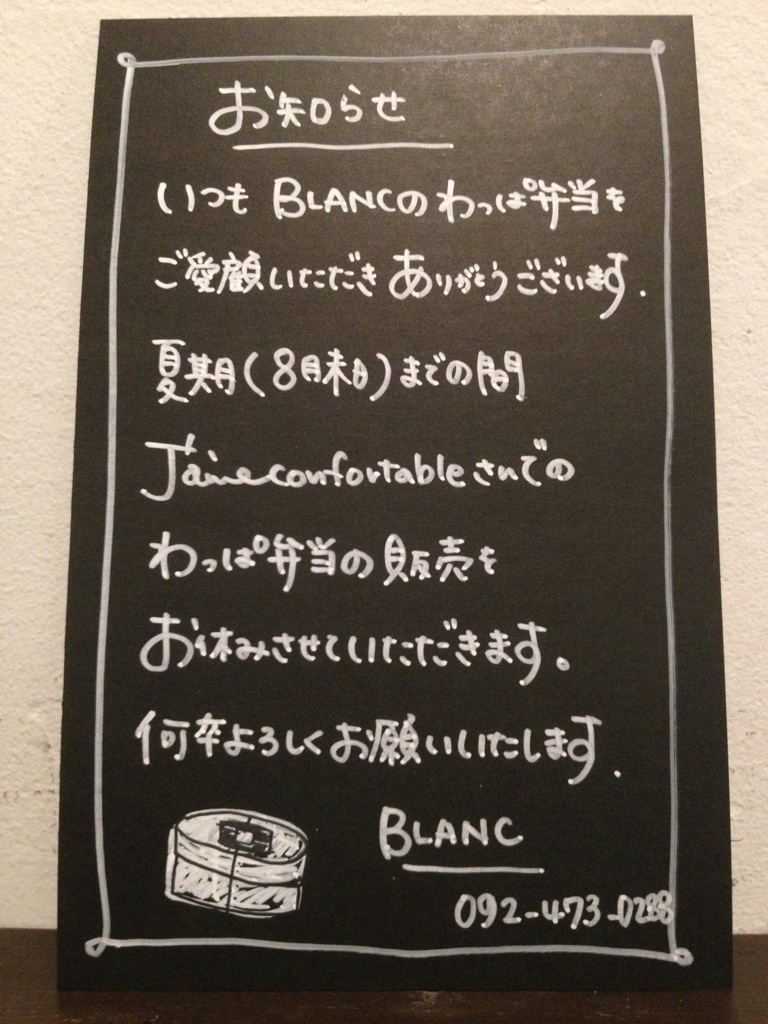 お知らせ
いつも BLANCの わっぱ弁当を
ご愛顧いただき ありがとうございます.
夏期(8月末日)までの間
J'aime confortable さんでの
わっぱ弁当の 販売を
お休みさせていただきます。
何卒よろしく お願いいたします.
BLANC
092-473-0288